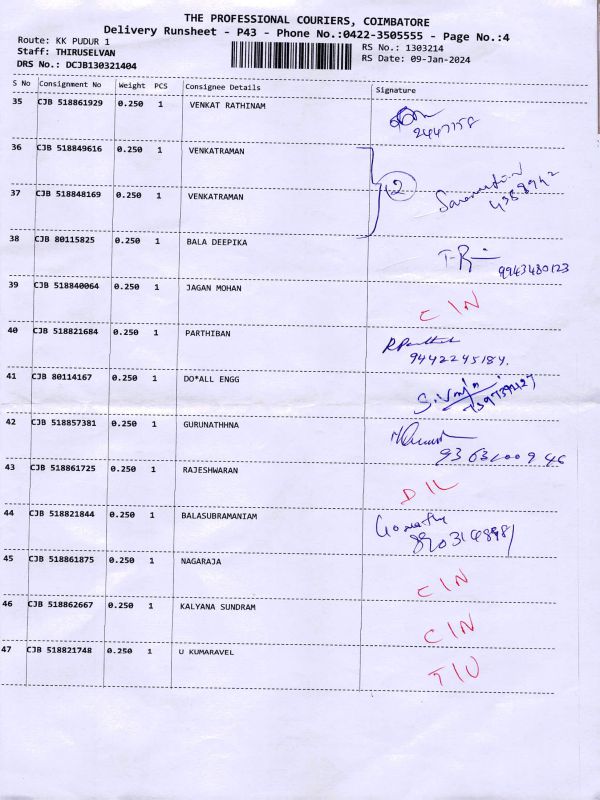 THE PROFESSIONAL COURIERS, COIMBATORE
Delivery Runsheet - P43 - Phone No.:0422-3505555 - Page No.:4
Route: KK PUDUR 1
Staff: THIRUSELVAN
DRS No.: DCJB130321404
RS No.: 1303214
RS Date: 09-Jan-2024
S No Consignment No Weight PCS Consignee Details Signature
35 CJB 518861929 0.250 1 VENKAT RATHINAM
2447158
36 CJB 518849616 0.250 1 VENKATRAMAN
2
37 CJB 518848169 0.250 1 VENKATRAMAN
38 CJB 80115825 0.250 1 BALA DEEPIKA
9943480123
39 CJB 518840064 0.250 1 JAGAN MOHAN
CIN
40 CJB 518821684 0.250 1 PARTHIBAN
9442245184.
41 CJB 80114167 0.250 1 DO*ALL ENGG
42 CJB 518857381 0.250 1 GURUNATHHNA
43 CJB 518861725 0.250 1 RAJESHWARAN
DIL
44 CJB 518821844 0.250 1 BALASUBRAMANIAM
45 CJB 518861875 0.250 1 NAGARAJA
CIN
46 CJB 518862667 0.250 1 KALYANA SUNDRAM
CIN
47 CJB 518821748 0.250 1 U KUMARAVEL